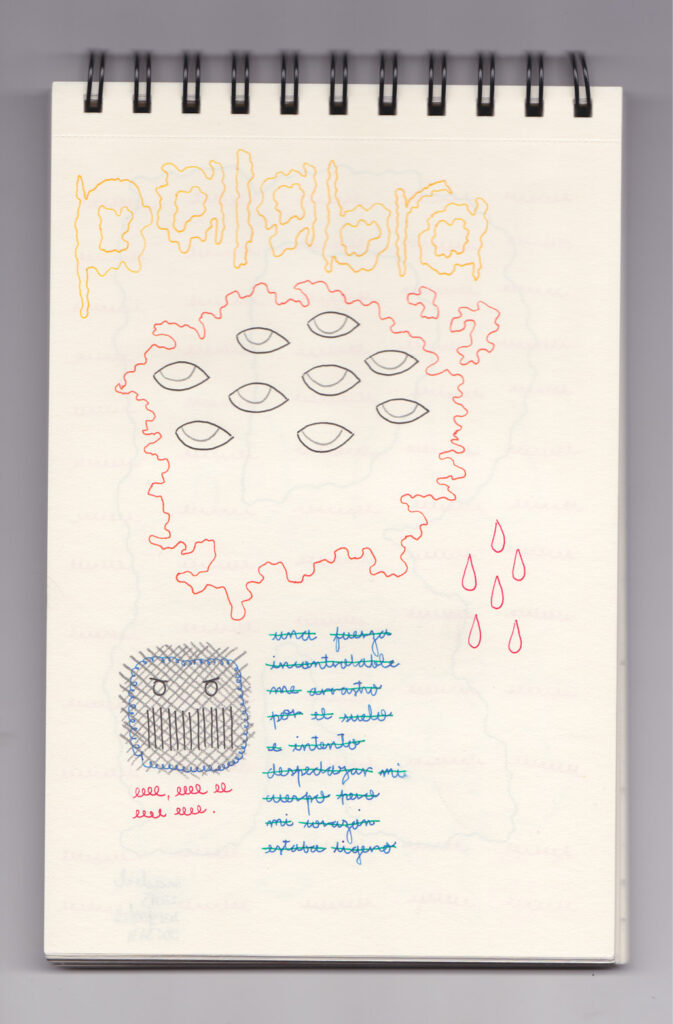 palabra
una fuerza
incontrolable
me arrastró
por el suelo
e intento
despedazar mi
cuerpo pero
mi corazón
estaba ligero